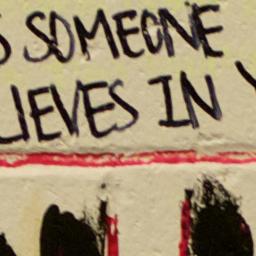 S SOMEONE
LIEVES IN